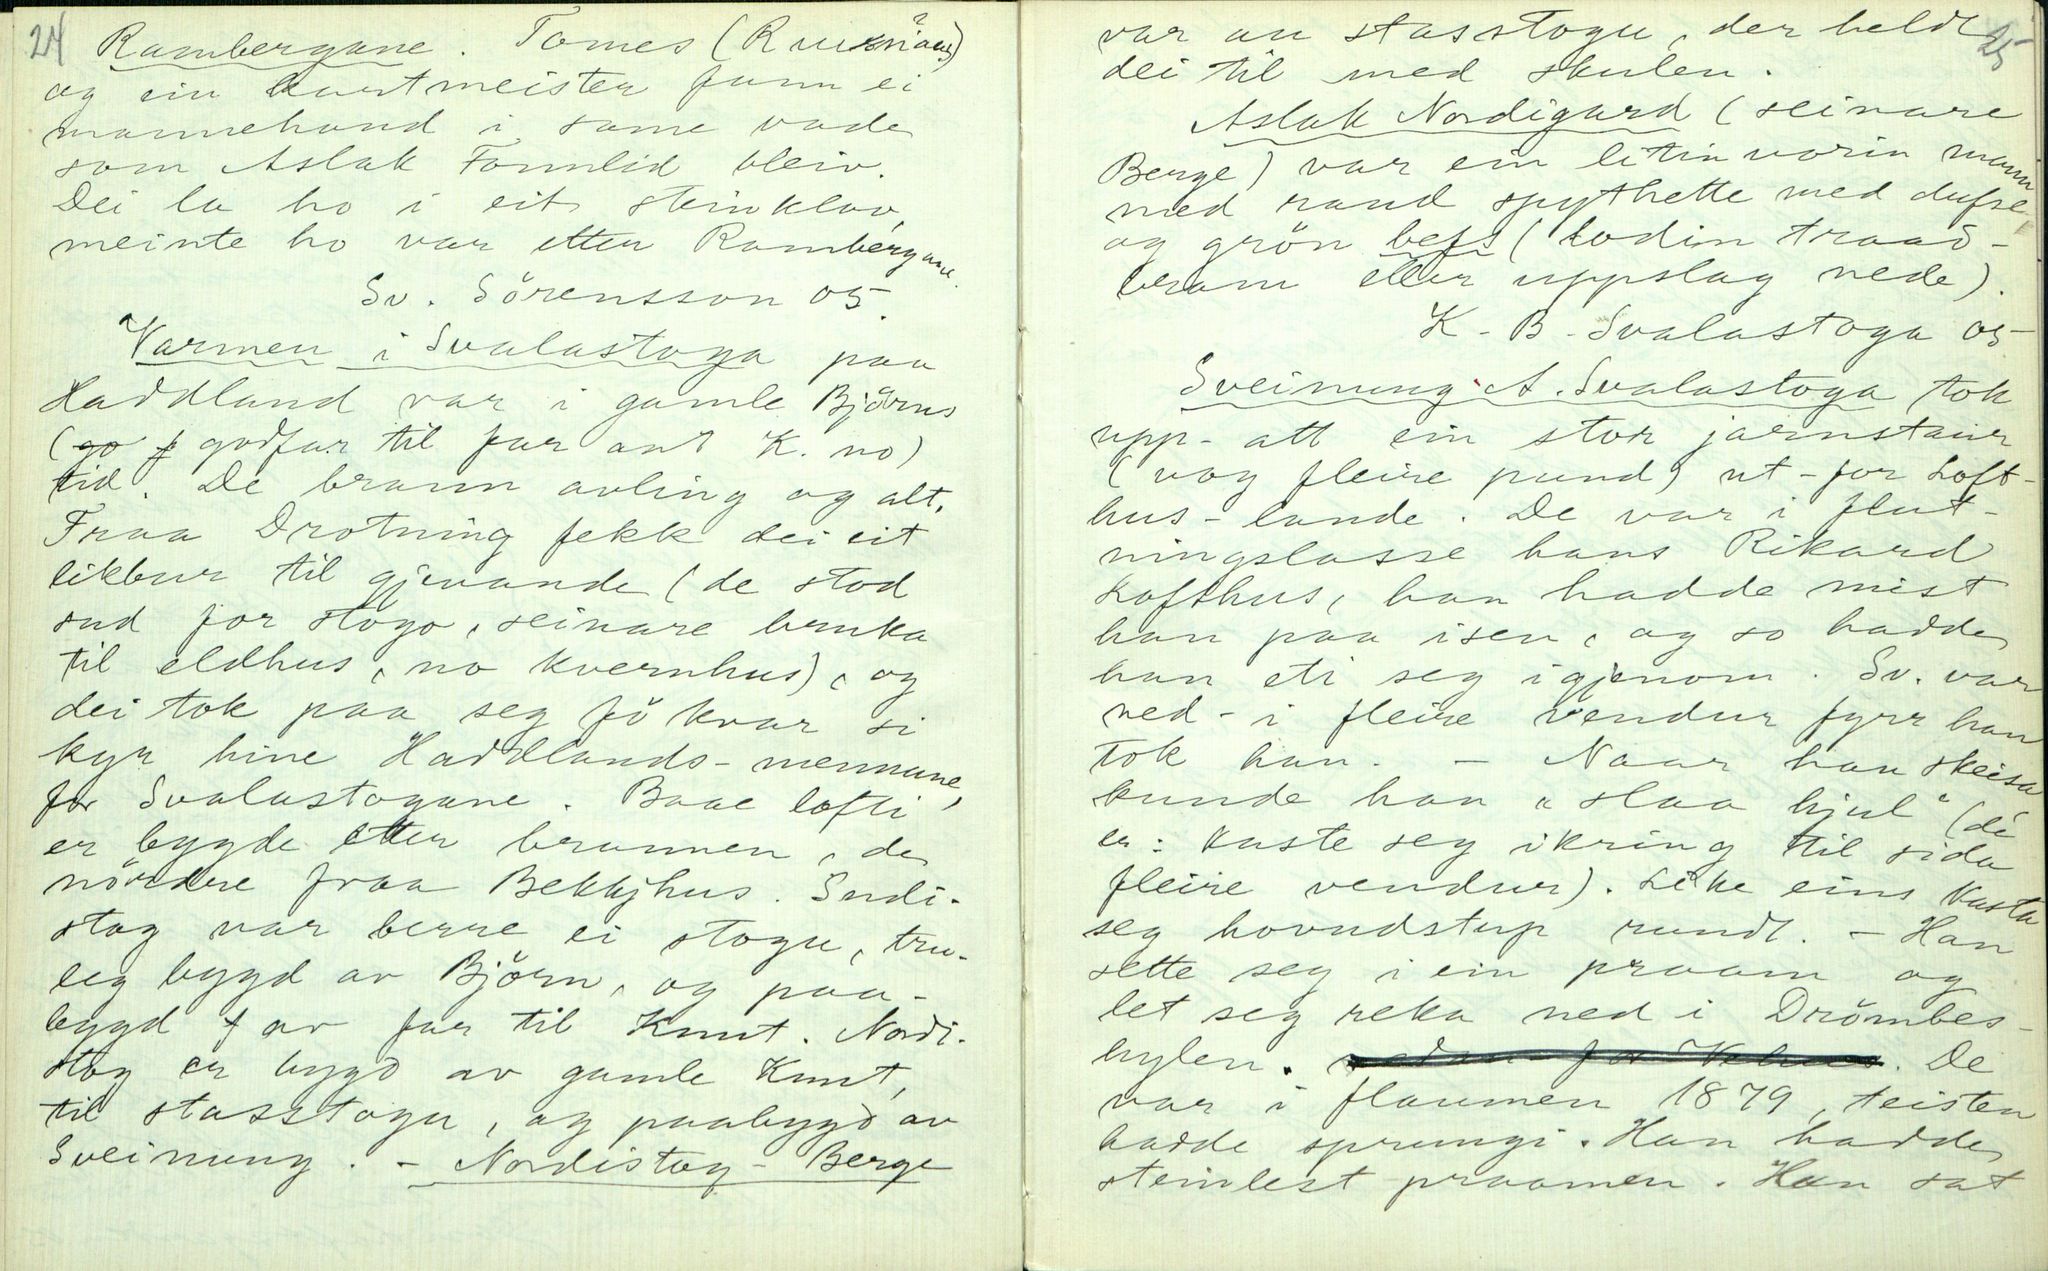 24 Rambergane. Tomes
og ein kvartmeister funn ei
mannehand i same vade
som Aslak Fonnlid bleiv.
Dei la ho i eit steinklov,
meinte ho var etter Rambergane.
Sv. Sörensson 05.
Varmen i Svalastoga paa
Haddland var i gamle Björns
(go f godfar til far aat K. no)
tid. De brann avling og alt.
Fraa Drotning fekk dei eit
likbur til gjevande (de stod
sud for stogo, seinare bruka
til eldhus, no kvernhus), og
dei tok paa seg fö kvar si
kyr hine Haddlands-mennane,
for Svalastogane. Baae lofti
er bygde etter brannen, de
nördre fraa Bekkjhus. Sudi-
stog var berre ei stogu, tru-
leg bygd av Björn, og paa-
bygd f av far til Knut. Nordi-
stog er bygd av gamle Knut,
til stasstogu, og paabygd av
Sveinung. - Nordistog - Berge
25
var au stasstogu, der heldt
dei til med skulen.
Aslak Nordigard (seinare
Berge) var ein litin vorin mann
med raud spythette med dufse
og grön befs (lodin traad-
bram eller uppslag nede).
K. B. Svalastoga 05
Sveinung A. Svalastoga tok
upp-att ein stor jarnstaur
(vog fleire pund) ut-for Loft-
hus-lande. De var i flut-
ningslasse hans Rikard
Lofthus, han hadde mist
han paa isen, og so hadde
han eti seg igjenom. Sv. var
ned-i fleire vendur fyrr han
tok han. - Naar han skeisa
kunde han "slaa hjul" (de
er: kaste seg ikring til sida
fleire vendur). Like eins kasta
seg hovudstup rundt. - Han
sette seg i ein praam og
let seg reka ned i Drömbes-
hylen. De
var i flaumen 1879, teisten
hadde sprungi. Han hadde
steinlest praamen. Han sat